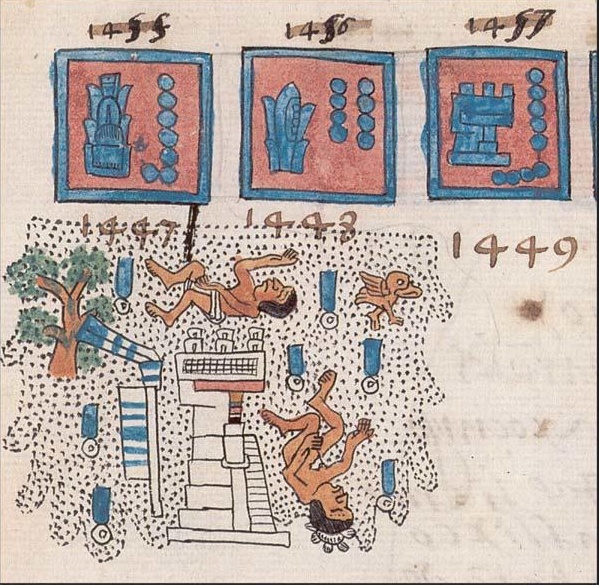 1455 1456 1457
1447 1448 1449